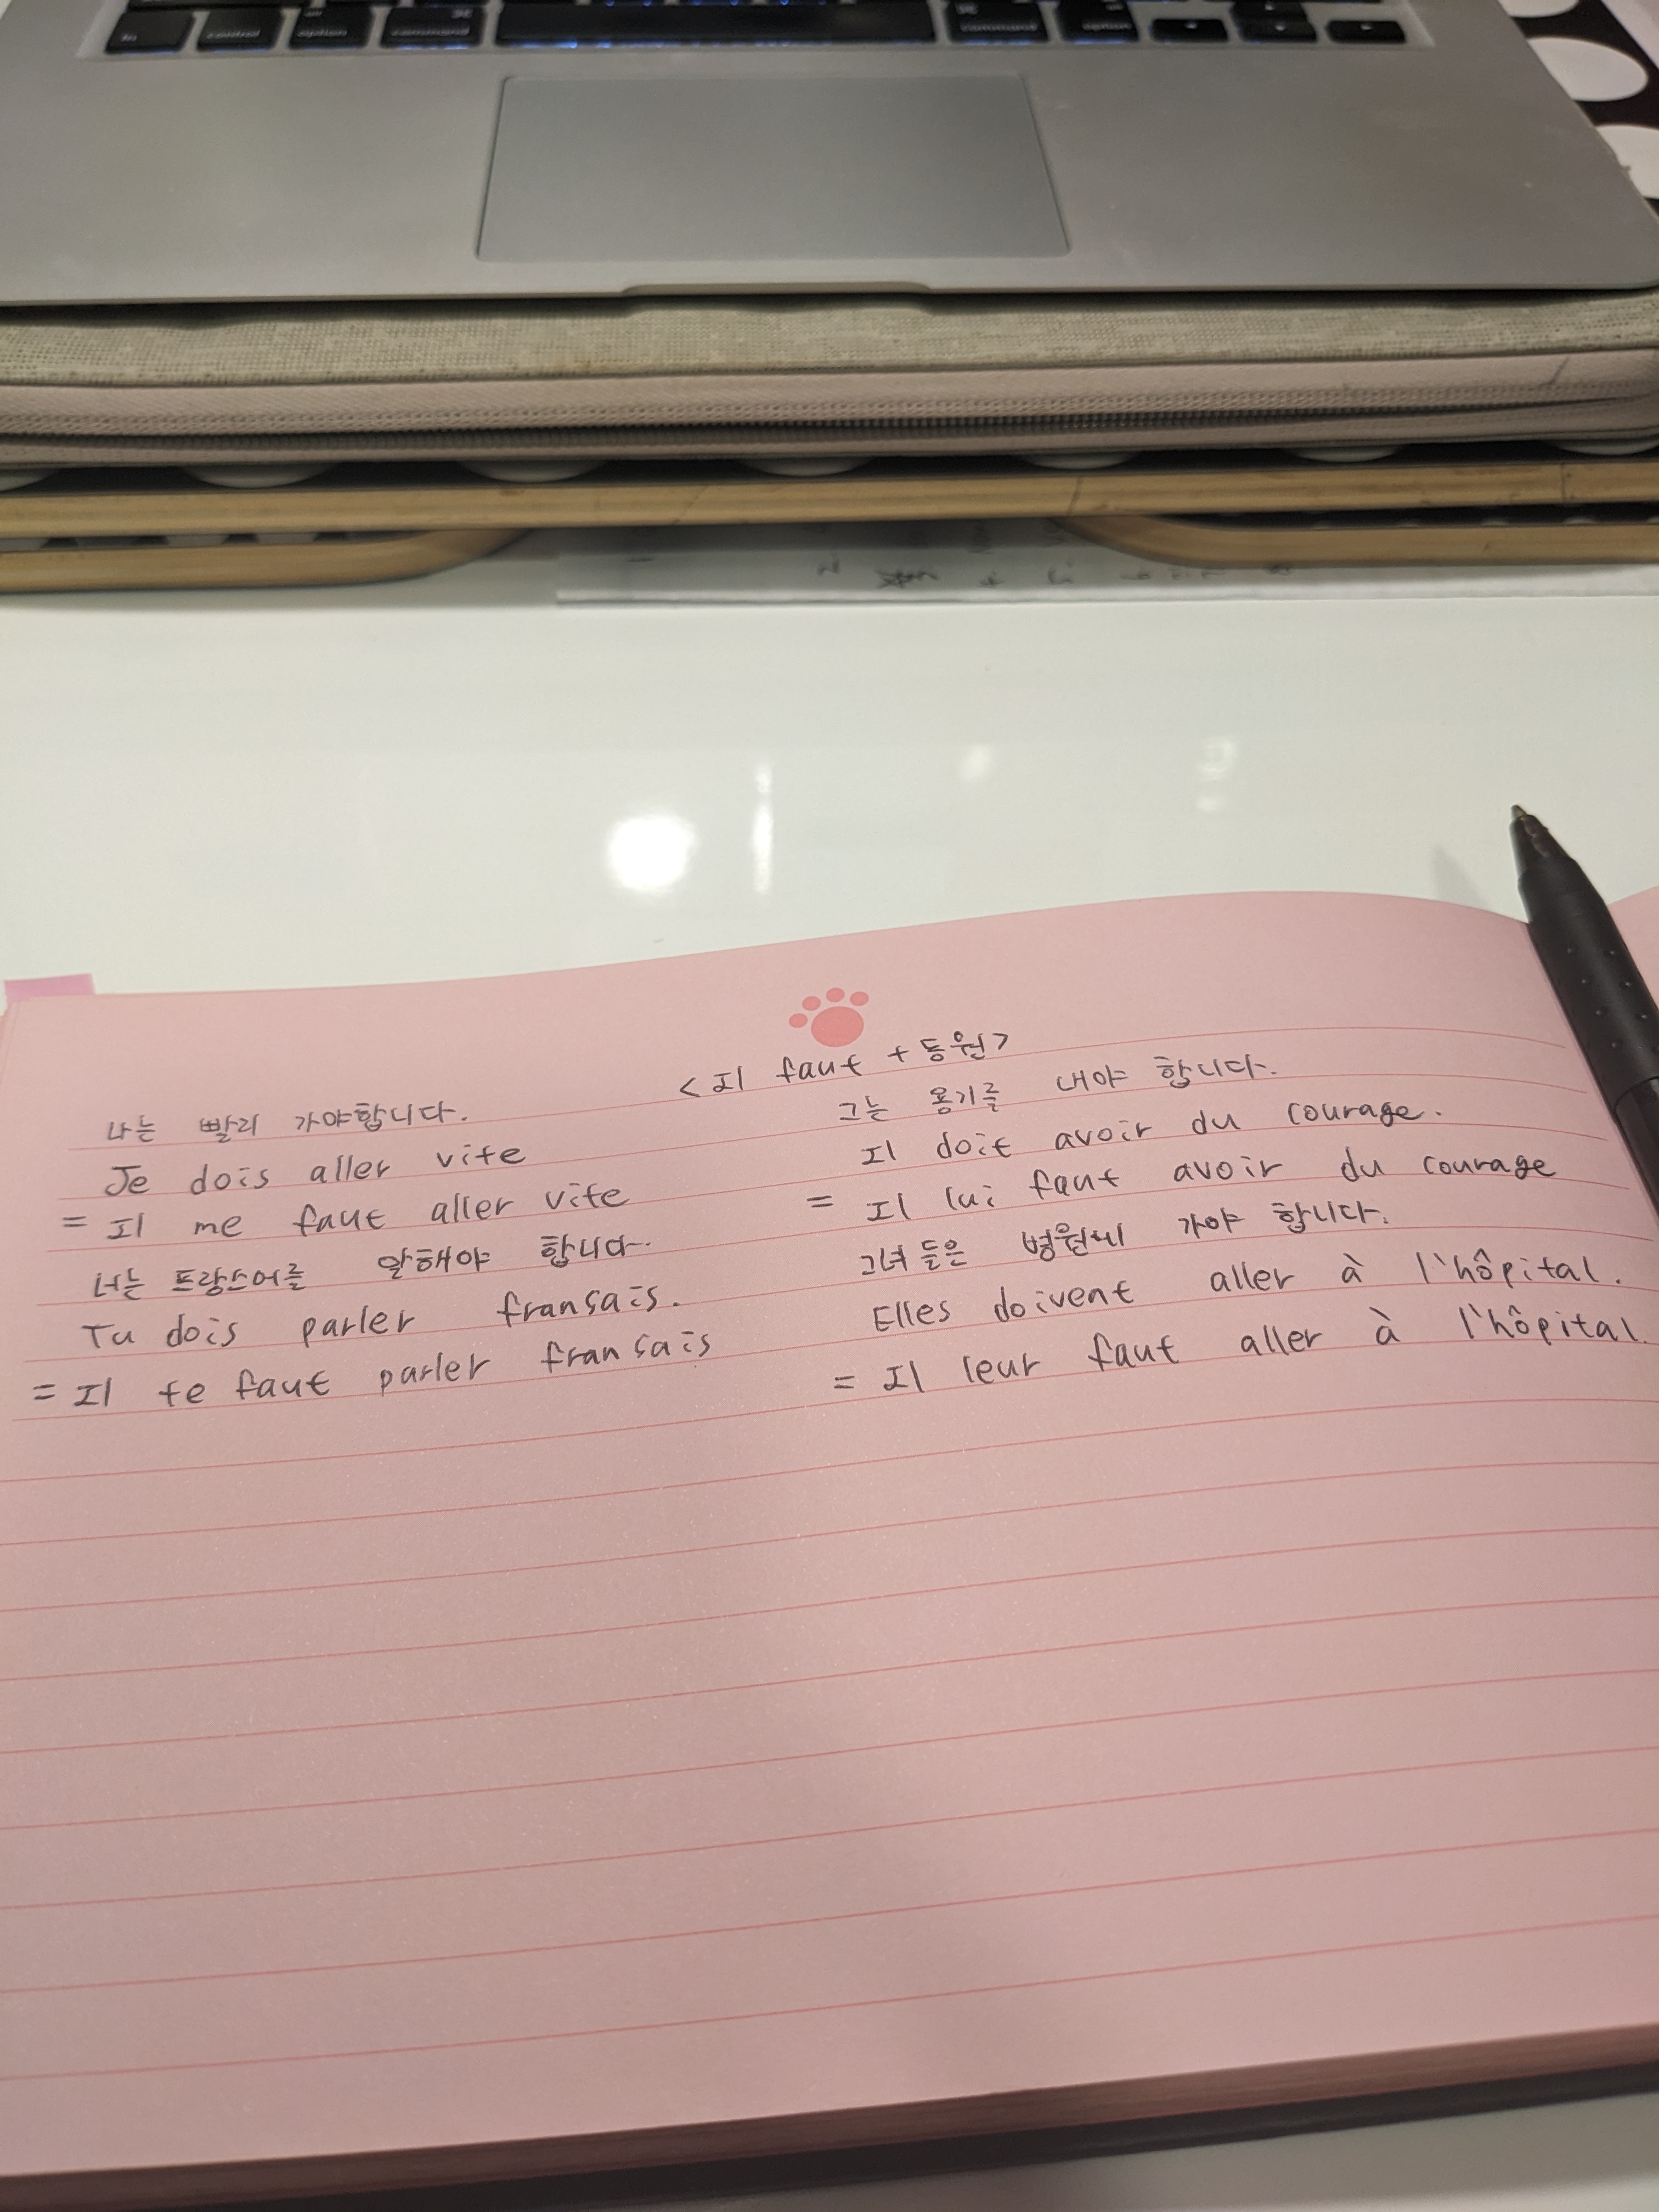 fn
control
option
command
command
option
<Il faut +동원>
나는 빨리 가야합니다.
Je dois aller vite
= Il me faut aller vite
너는 프랑스어를 말해야 합니다.
Tu dois parler français.
= Il te faut parler français
그는 용기를 내야 합니다.
Il doit avoir du courage.
= Il lui faut avoir du courage
그녀들은 병원에 가야 합니다.
Elles doivent aller à l'hôpital.
= Il leur faut aller à l'hôpital.